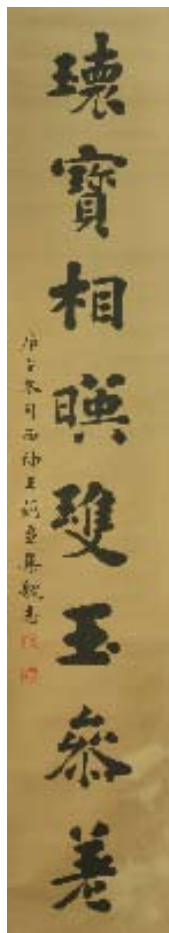 瓌寶相暎雙玉參差
庚午冬月西神王蘊章集魏志